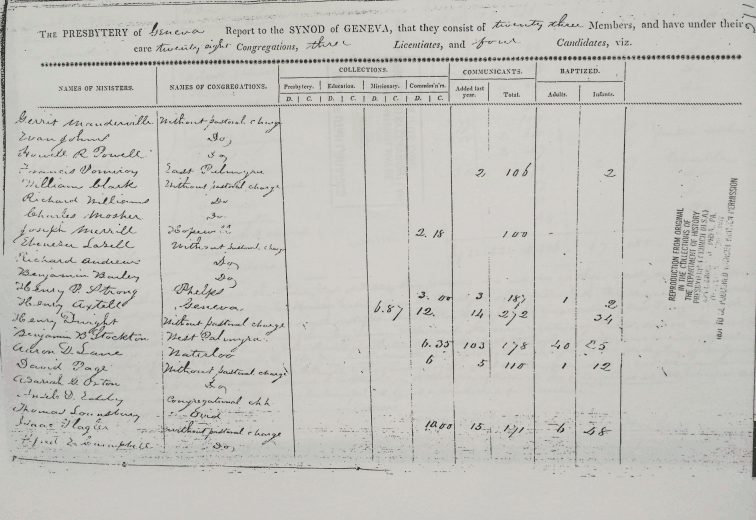 THE PRESBYTERY of Geneva Report to the SYNOD OF GENEVA, that they consist of twenty three Members, and have under their
care twenty eight Congregations, three Licentiates, and four Candidates, viz.
COLLECTIONS. COMMUNICANTS. BAPTIZED.
NAMES OF MINISTERS. NAMES OF CONGREGATIONS. Presbytery. Education. Missionary. Commis'n'rs. Added last year. Total. Adults. Infants.
D. C. D. C. D. C. D. C.
Gerrit Manderville Without pastoral charge
Evan Johns Do,
Howell R Powell Do,
Francis Pomeroy East Palmyra 2 106 2
William Clark Without pastoral charge
Richard Williams Do
Charles Mosher Do
Joseph Merrill Hopewell 2. 18 100
Ebenezer Lazell Without pastoral charge
Richard Andrews Do,
Benjamin Bailey Do,
Henry P. Strong Phelps 3. 00 3 187 1 2
Henry Axtell Geneva 6.87 12. 14 272 34
Henry Dwight Without pastoral charge
Benjamin B Stockton West Palmyra 6.35 103 178 40 25
Aaron D. Lane Waterloo 6 5 110 1 12
David Page Without pastoral charge
Azariah G Orton Do,
Ansel D. Eddy Congregational chh
Thomas Lounsbury Ovid
Isaac Flagler without pastoral charge 10.00 15 171 6 48
Alfred E. Campbell Do,
REPRODUCTION FROM ORIGINAL
IN THE COLLECTIONS OF
THE DEPARTMENT OF HISTORY
PRESBYTERIAN CHURCH (U.S.A.)
NOT TO BE PUBLISHED WITHOUT WRITTEN PERMISSION